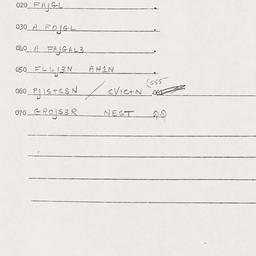 020 FAJGL
030 A FOJGL
040 A FAJGAL3
050 FLIJ3N AH1N
060 PJIS+C8N / CVIC+N (SSS
070 GROJS3R NEST